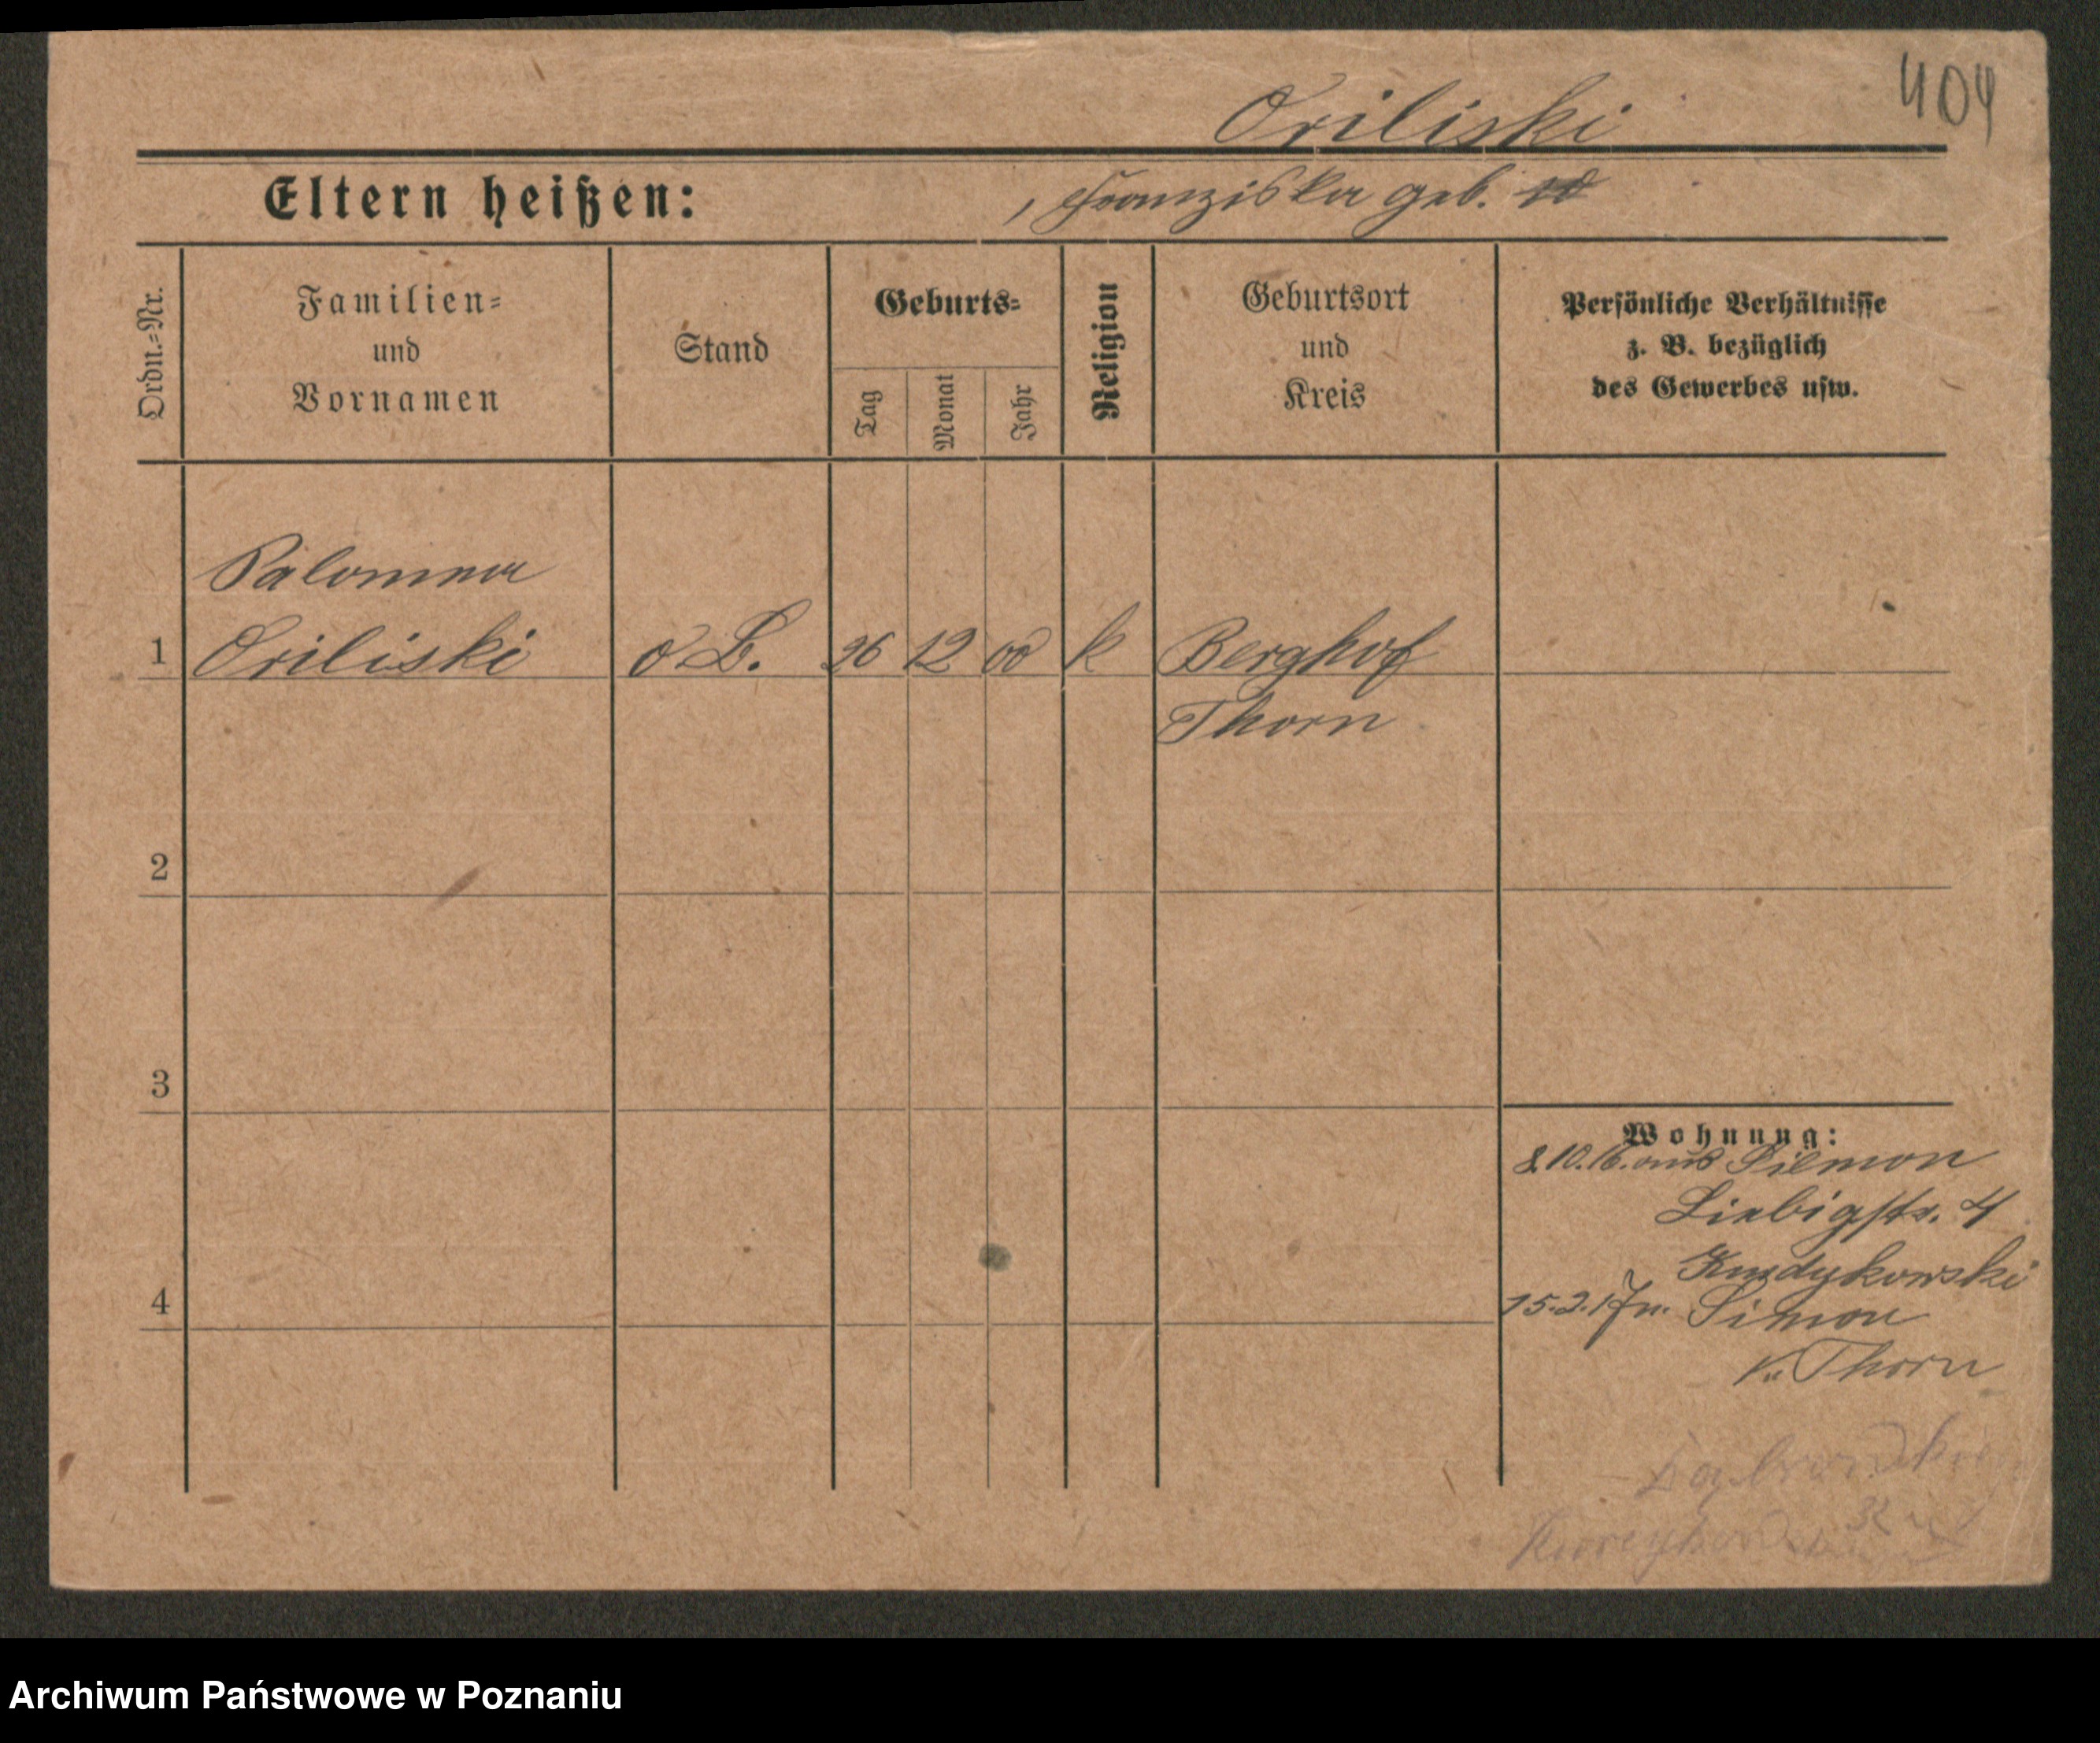 404
Oriliski
Eltern heißen:
, Franziska geb.
Ordn.=Nr.
Familien=
und
Vornamen
Stand
Geburts=
Tag
Monat
Jahr
Religion
Geburtsort
und
Kreis
Persönliche Verhältnisse
z. B. bezüglich
des Gewerbes usw.
Palomna
1 Oriliski o B. 26 12 00 k Berghof
Thorn
2
3
Wohnung:
8.10.16. aus
Liebigstr. 4
15.2.17 n. Simon
Thorn
4
Archiwum Państwowe w Poznaniu